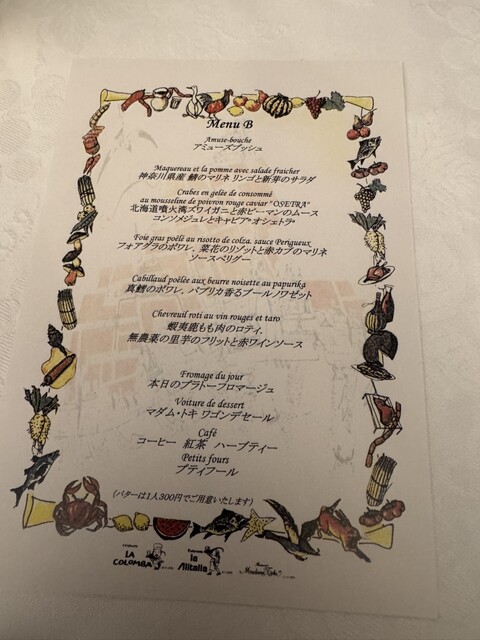 Menu B
Amuse-bouche
アミューズブッシュ
Maquereau et la pomme avec salade fraicher
神奈川県産 鯖のマリネ リンゴと新芽のサラダ
Crabes en gelée de consommé
au mousseline de poivron rouge caviar "OSETRA"
北海道噴火湾ズワイガニと赤ピーマンのムース
コンソメジュレとキャビア"オシェトラ"
Foie gras poêlé au risotto de colza. sauce Perigueux
フォアグラのポワレ、菜花のリゾットと赤カブのマリネ
ソースペリグー
Cabillaud poêlée aux beurre noisette au papurika
真鱈のポワレ、パプリカ香るブールノワゼット
Chevreuil roti au vin rouges et taro
蝦夷鹿もも肉のロティ、
無農薬の里芋のフリットと赤ワインソース
Fromage du jour
本日のプラトーフロマージュ
Voiture de dessert
マダム・トキ ワゴンデセール
Café
コーヒー 紅茶 ハーブティー
Petits fours
プティフール
(バターは1人300円でご用意いたします)
LA COLOMBA
la Alitalia
Madame Toki